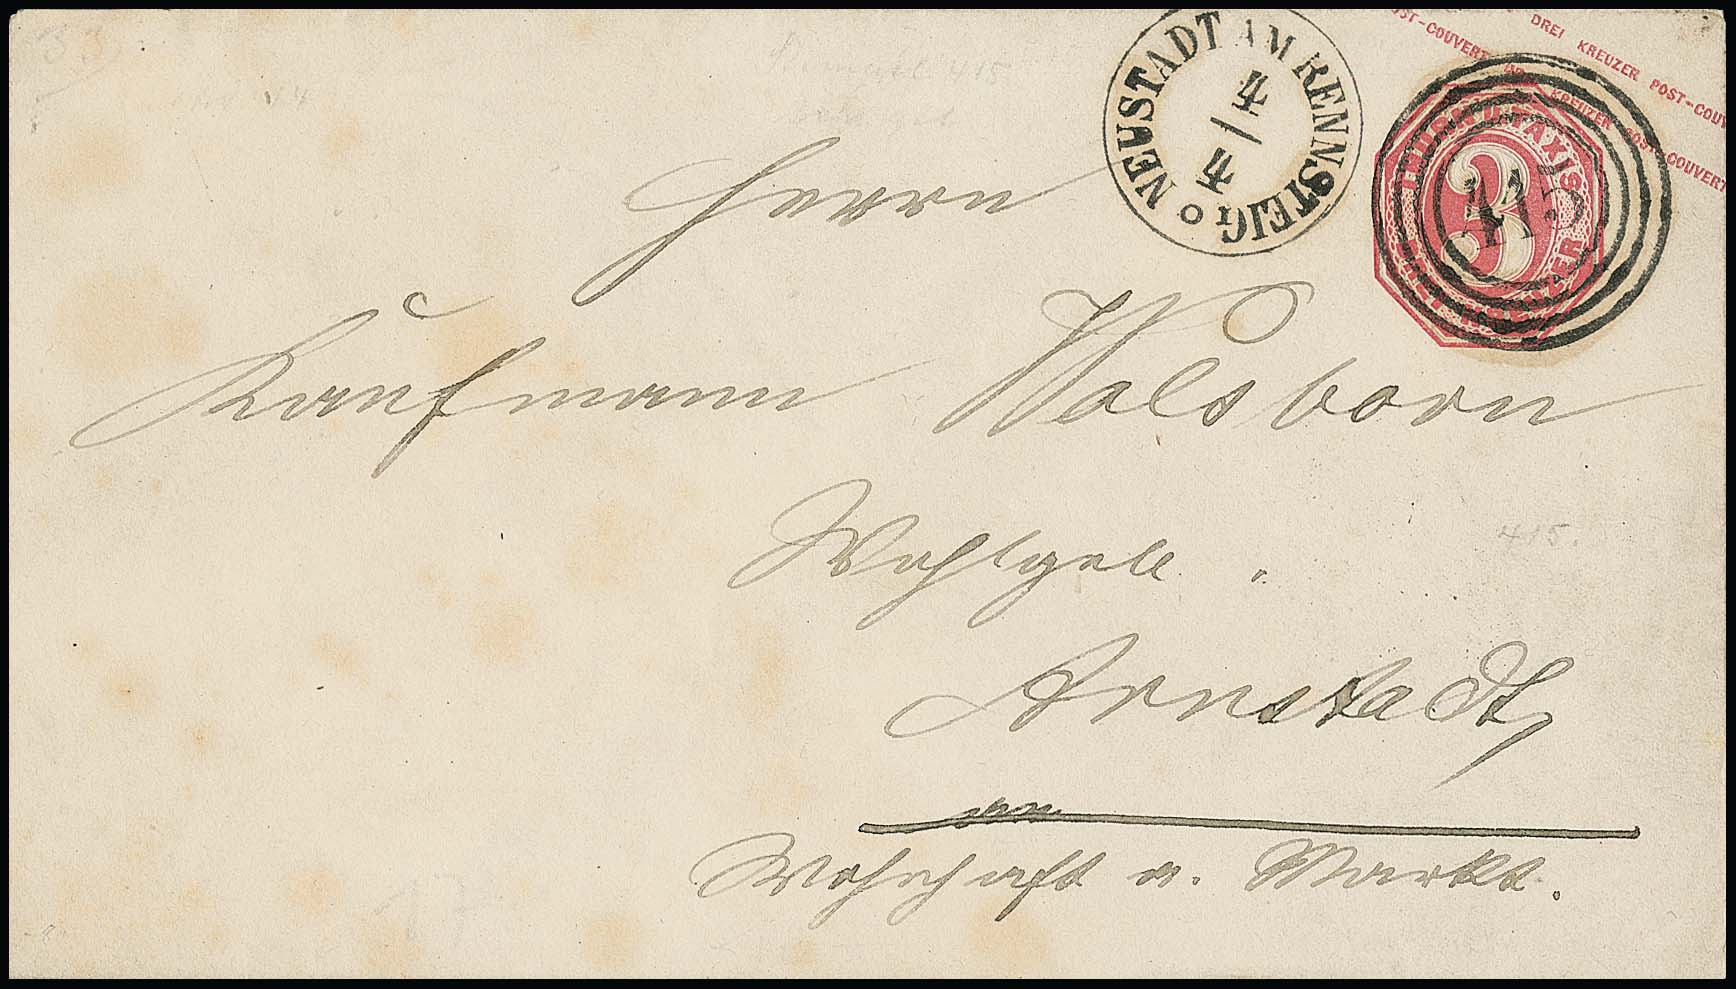 DREI KREUZER POST-COUV
ST-COUVERT KREUZER POST-COUVERT
NEUSTADT AM RENNSTEIG
4/4
THURN U. TAXIS
3
DREI KREUZER
Herrn
Kaufmann Walsborn
Wohlgeb.
Arnstadt,
415.
a. Markt.